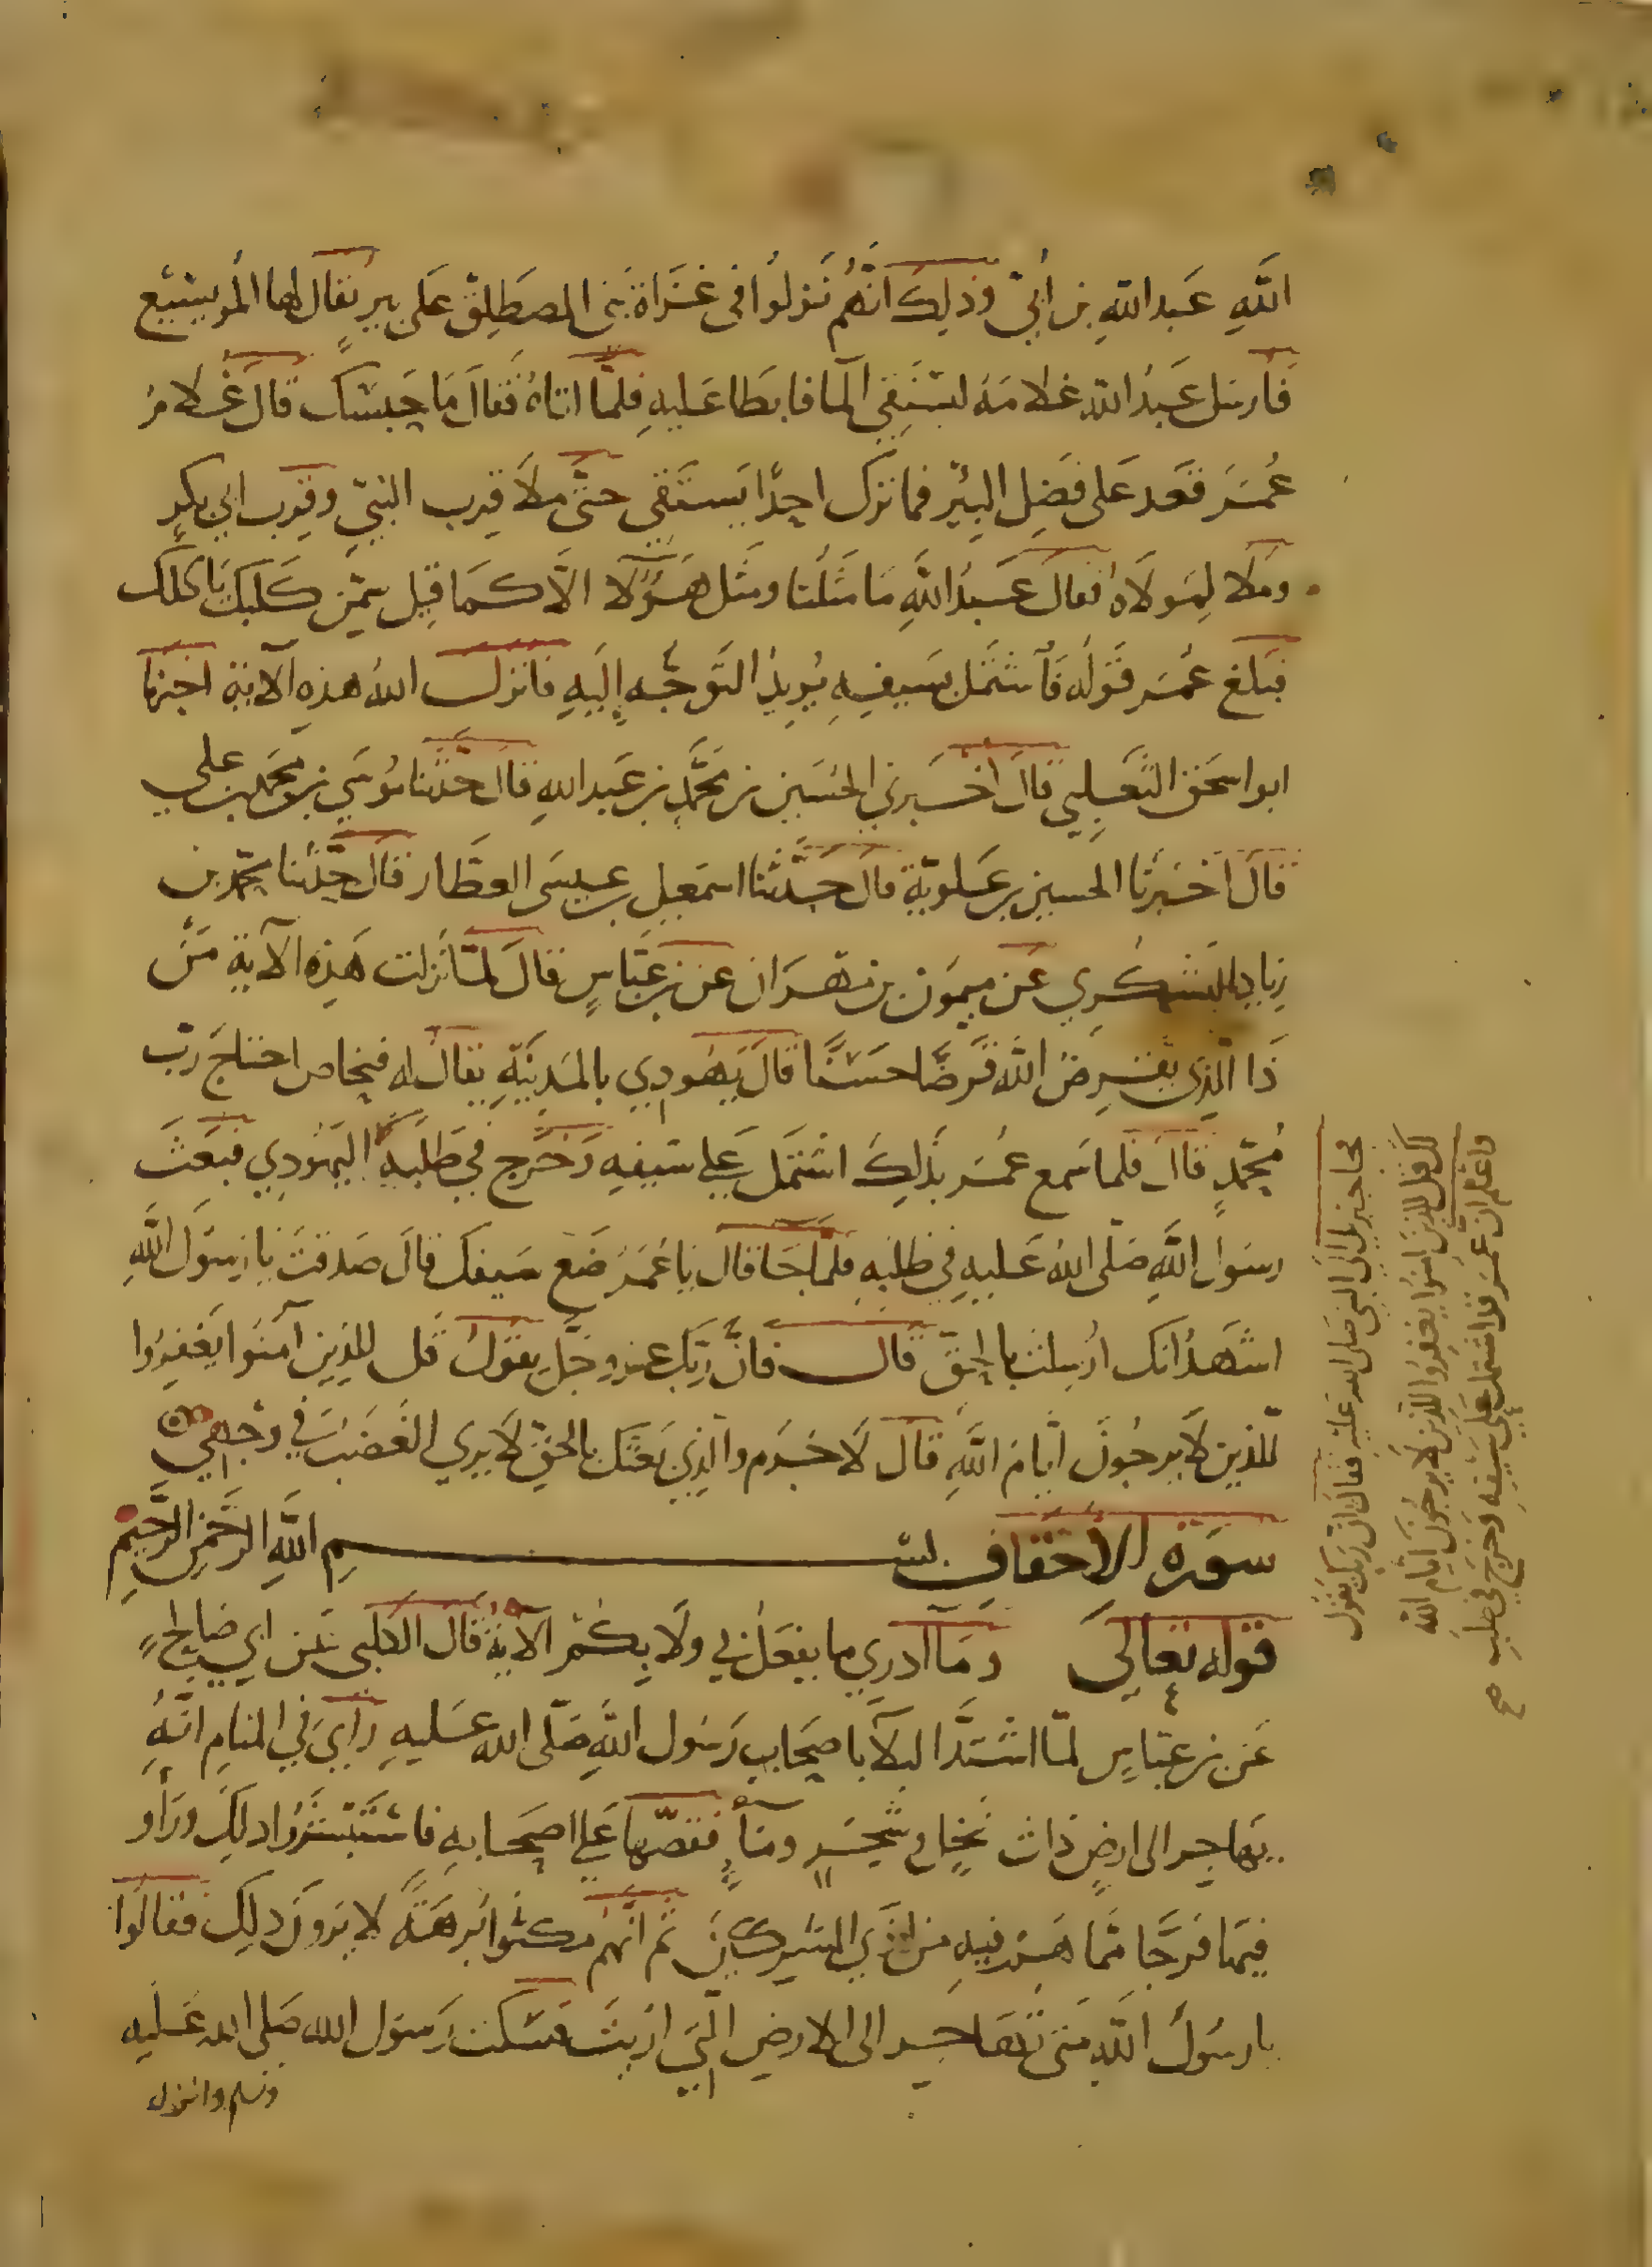 الله عبد الله بن أبيّ وذلك انهم نزلوا في غزاة بني المصطلق على بير يقال لها المريسيع
فارسل عبد الله غلامه ليستقي الما فابطا عليه فلما اتاه فقال ما حبسك قال غلام
عمر قعد على فضل البئر فما ترك احدا يستقي حتى ملا قرب النبي وقرب ابي بكر
وملا لمولاه فقال عبد الله ما مثلنا ومثل هؤلا الا كما قيل سمن كلبك ياكلك
فبلغ عمر قوله فاشتمل بسيفه يريد التوجه إليه فانزل الله هذه الآية اخبرنا
ابو اسحق الثعلبي قال اخبرني الحسين بن محمد بن عبد الله قال حدثنا موسى بن محمد بن علي
قال اخبرنا الحسين بن علوية قال حدثنا اسمعيل بن عيسى العطار قال حدثنا محمد بن
زياد اليشكري عن ميمون بن مهران عن بن عباس قال لما نزلت هذه الآية من
ذا الذي يقرض الله قرضا حسنا قال يهودي بالمدينة يقال له فنحاص احتاج رب
محمد قال فلما سمع عمر بذلك اشتمل على سيفه وخرج في طلب اليهودي فبعث
رسول الله صلى الله عليه في طلبه فلما جا قال يا عمر ضع سيفك قال صدقت يا رسول الله
اشهد انك ارسلت بالحق قال فان ربك عز وجل يقول قل للذين آمنوا يغفروا
للذين لا يرجون ايام الله قال لا جرم والذي بعثك بالحق لا يرى الغضب في وجهي
سورة الاحقاف بسم الله الرحمن الرحيم
قوله تعالى وما ادري ما يفعل بي ولا بكم الآية قال الكلبي عن ابي صالح
عن بن عباس لما اشتد البلا باصحاب رسول الله صلى الله عليه راى في المنام انه
يهاجر الى ارض ذات نخل وشجر ومآ فقصها على اصحابه فاستبشروا بذلك وراو
فيها فرجا مما هم فيه من اذى المشركين ثم انهم مكثوا برهة لا يرون ذلك فقالوا
يا رسول الله متى نهاجر الى الارض التي اريت فسكت رسول الله صلى الله عليه
وسلم وانزل
فجا جبريل الى النبي صلى الله عليه فقال ان ربك يقول
لك قل للذين امنوا يغفروا للذين لا يرجون ايام الله
واعلم ان عمر قد اشتمل على سيفه وخرج في طلب
صح